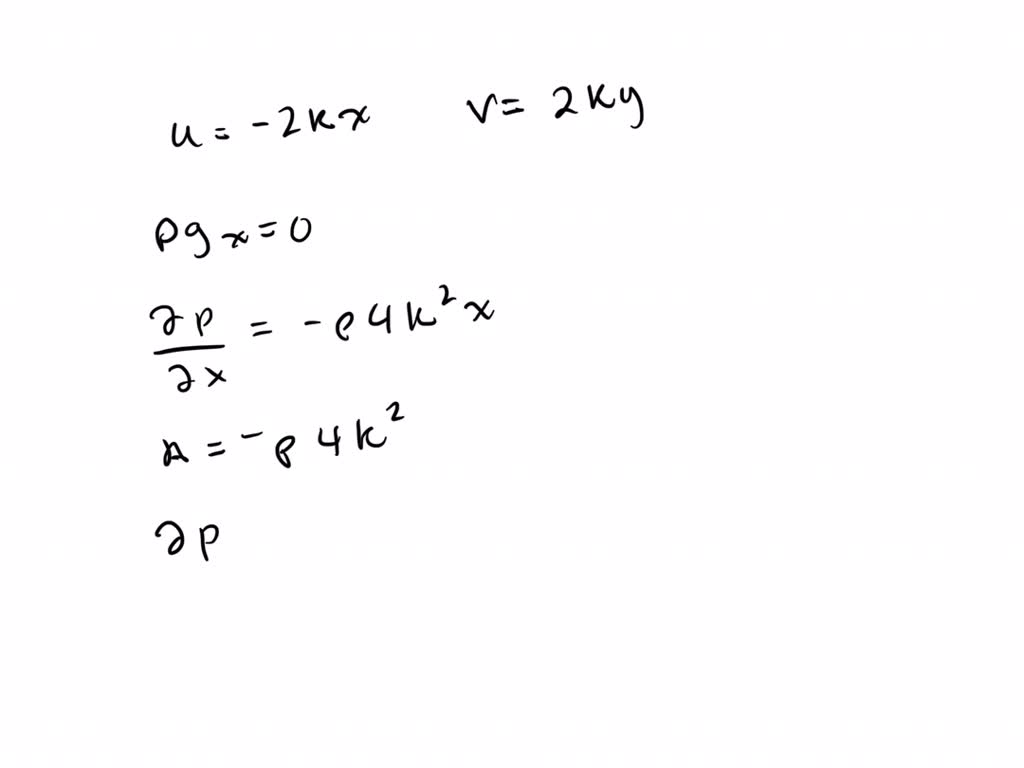 u = -2kx v = 2ky
ρg x = 0
∂p/∂x = -ρ4k²x
A = -ρ4k²
∂p